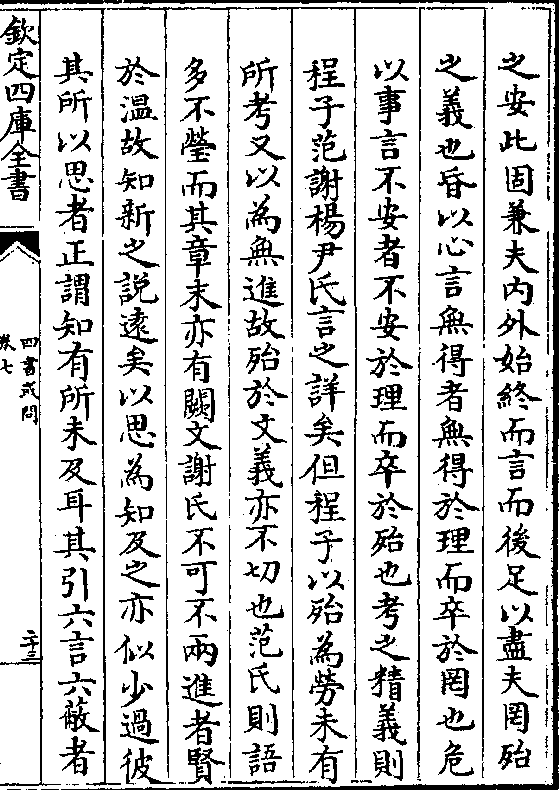 之安此固兼夫内外始終而言而後足以盡夫罔殆
之義也昏以心言無得者無得於理而卒於罔也危
以事言不安者不安於理而卒於殆也考之精義則
程子范謝楊尹氏言之詳矣但程子以殆為勞未有
所考又以為無進故殆於文義亦不切也范氏則語
多不瑩而其章末亦有闕文謝氏不可不兩進者賢
於温故知新之説遠矣以思為知及之亦似少過彼
其所以思者正謂知有所未及耳其引六言六蔽者
欽定四庫全書
四書或問
卷七
二十三